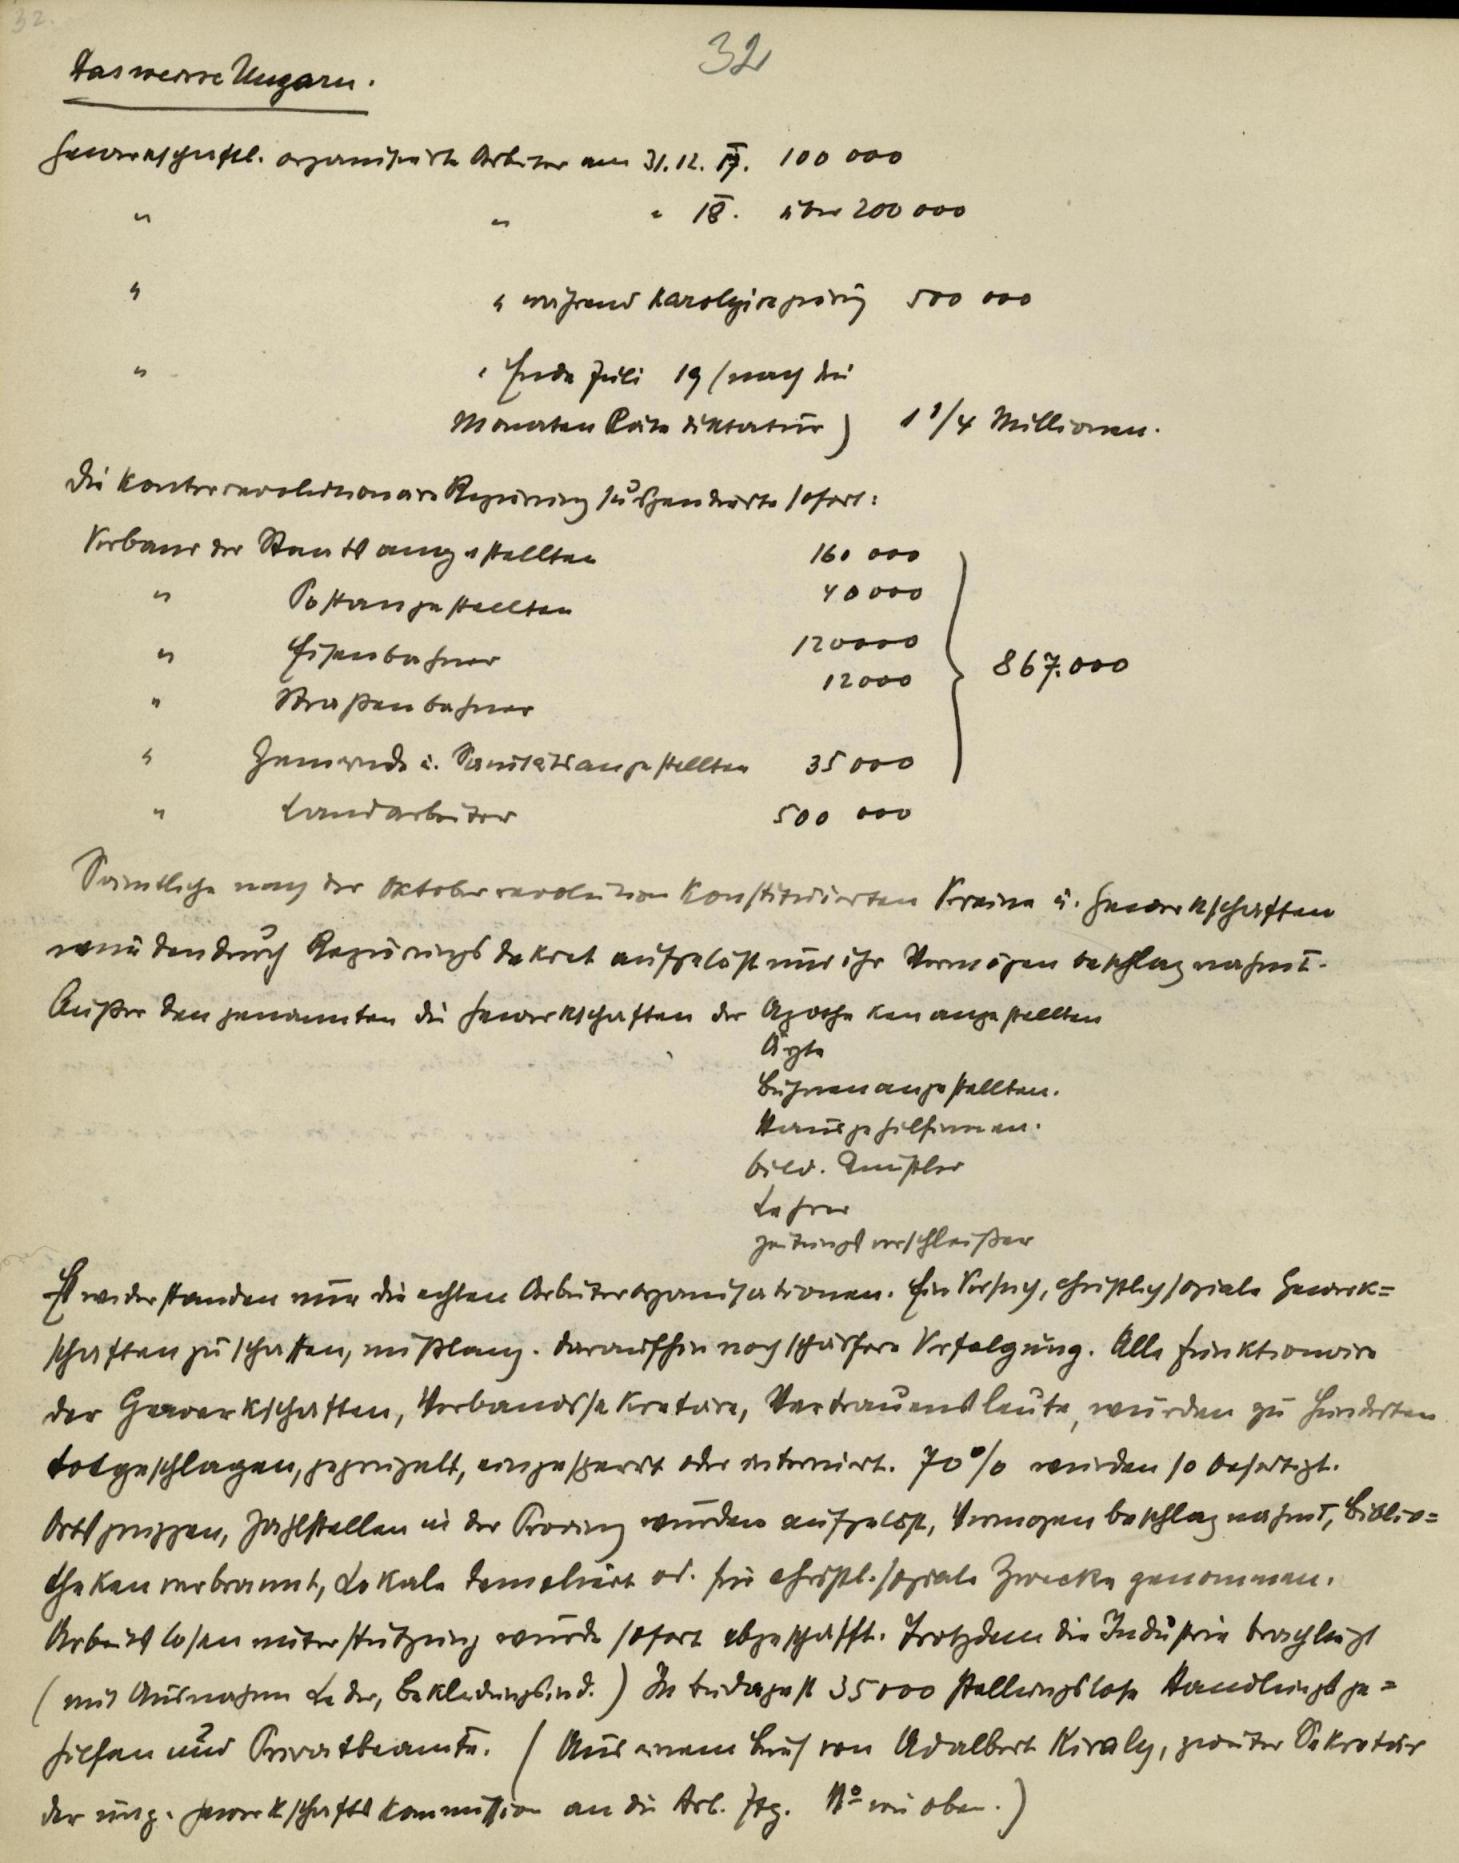 32.
32
Das weisse Ungarn.
Gewerkschaftl. organisierte Arbeiter am 31.12. 17. 100 000
" " " 18. über 200 000
" " während Karolyiregierung 500 000
" " Ende Juli 19 (nach drei
Monaten Räte diktatur) 1 1/4 Millionen.
Die konterrevolutionäre Regierung suspendierte sofort:
Verband der Staatsangestellten 160 000
" Postangestellten 40 000
" Eisenbahner 120000
" Straßenbahner 12000
867.000
" Gemeinde u. Sanitätsangestellten 35 000
" Landarbeiter 500 000
Sämtliche nach der Oktoberrevolution konstituierten Vereine u. Gewerkschaften
wurden durch Regierungsdekret aufgelöst und ihr Vermögen beschlagnahmt.
Außer den genannten die Gewerkschaften der Apothekenangestellten
Ärzte
Bühnenangestellten.
Hausgehilfinnen.
bild. Künstler
Lehrer
Zeitungsverschleißer
Es widerstanden nur die echten Arbeiterorganisationen. Ein Versuch, christlichsoziale Gewerk=
schaften zu schaffen, mißlang. Daraufhin noch schärfere Verfolgung. Alle Funktionäre
der Gewerkschaften, Verbandssekretäre, Vertrauensleute, wurden zu Hunderten
totgeschlagen, geprügelt, eingesperrt oder interniert. 70% wurden so beseitigt.
Ortsgruppen, Zahlstellen in der Provinz wurden aufgelöst, Vermögen beschlagnahmt, Biblio=
theken verbrannt, Lokale demoliert od. für christl. soziale Zwecke genommen.
Arbeitslosenunterstützung wurde sofort abgeschafft. Trotzdem die Industrie brachliegt
(mit Ausnahme Leder, Bekleidungsind.) In Budapest 35000 stellungslose Handlungsge=
hilfen und Privatbeamte. (Aus einem Brief von Adalbert Kiraly, zweiter Sekretär
der ung. Gewerkschaftskommission an die Arb. Ztg. No wie oben.)